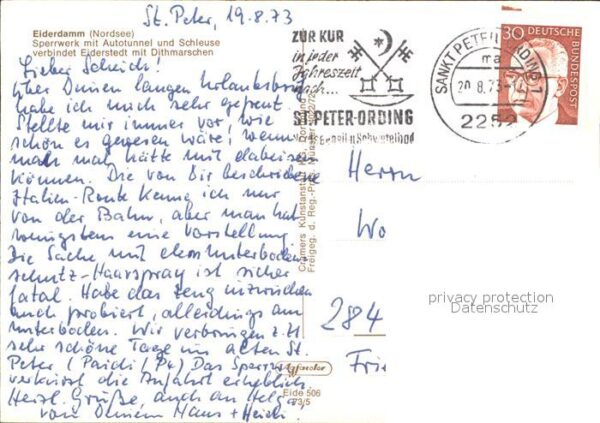 St. Peter, 19.8.73
Eiderdamm (Nordsee)
Sperrwerk mit Autotunnel und Schleuse
verbindet Eiderstedt mit Dithmarschen
Lieber Scheich!
Über Deinen langen Urlaubsbrief
habe ich mich sehr gefreut.
Stellte mir immer vor, wie
schön es gewesen wäre, wenn
man hätte mit dabeisein
können. Die von Dir beschriebene
Italien-Route kenne ich nur
von der Bahn, aber man hat
wenigstens eine Vorstellung.
Die Sache mit dem Unterboden-
schutz-Haarspray ist sicher
fatal. Habe das Zeug inzwischen
auch probiert, allerdings am
Unterboden. Wir verbringen z. Zt.
sehr schöne Tage im alten St.
Peter. Das Sperrwerk
verkürzt die Anfahrt erheblich.
Herzl. Grüße, auch an Helga,
von Deinem Hans + Heidi.
ZUR KUR
in jeder
Jahreszeit
nach...
ST. PETER-ORDING
Nordseeheil- u Schwefelbad
SANKT PETER-ORDING 1
ma
20.8.73
2252
30
DEUTSCHE
BUNDESPOST
Cramers Kunstanstalt KG, Dortmund
Freigeg. d. Reg.-Präs. Münster
Herrn
Wo
284
Frie
privacy protection
Datenschutz
Eide 506
73/5